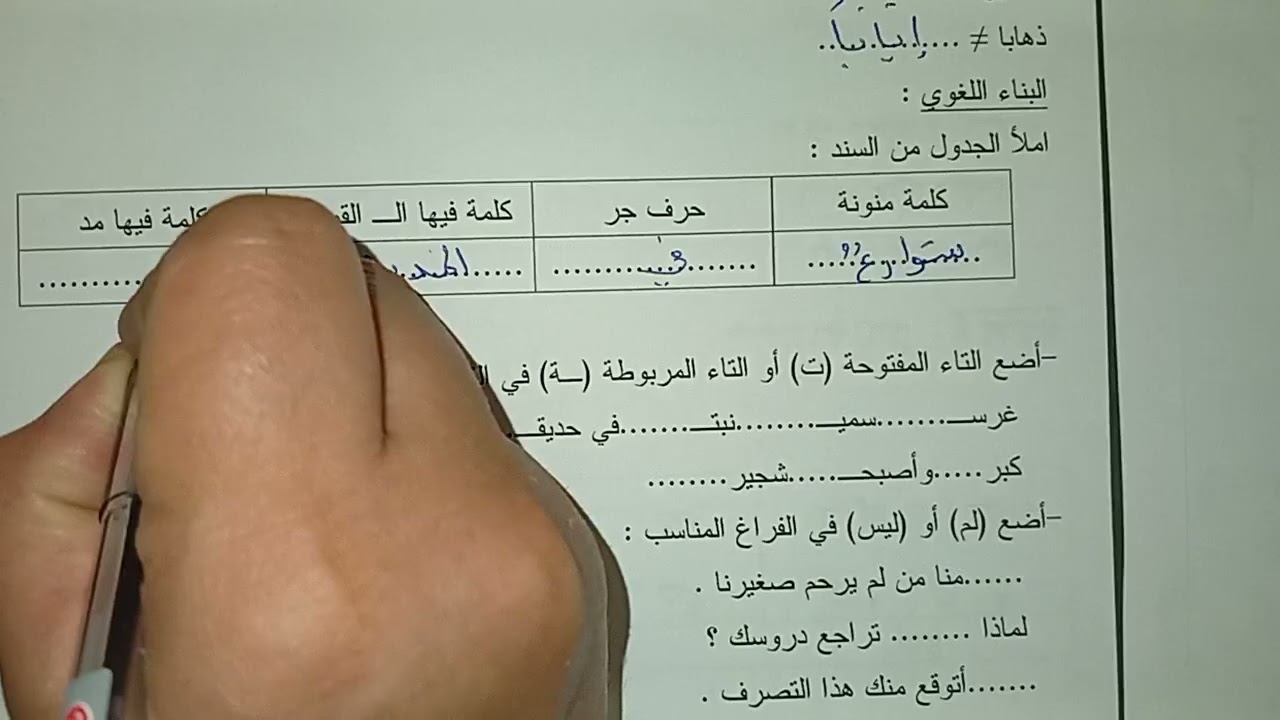 ذهابا ≠ ....إيابا..
البناء اللغوي :
املأ الجدول من السند :
كلمة منونة حرف جر كلمة فيها الـ كلمة فيها مد
.......في..........
-أضع التاء المفتوحة (ت) أو التاء المربوطة (ـة) في
غرسـ.......سميـ........نبتـ.......في حديقـ
كبر .....وأصبحـ.....شجير ........
-أضع (لم) أو (ليس) في الفراغ المناسب :
......منا من لم يرحم صغيرنا .
لماذا ........ تراجع دروسك ؟
.......أتوقع منك هذا التصرف .